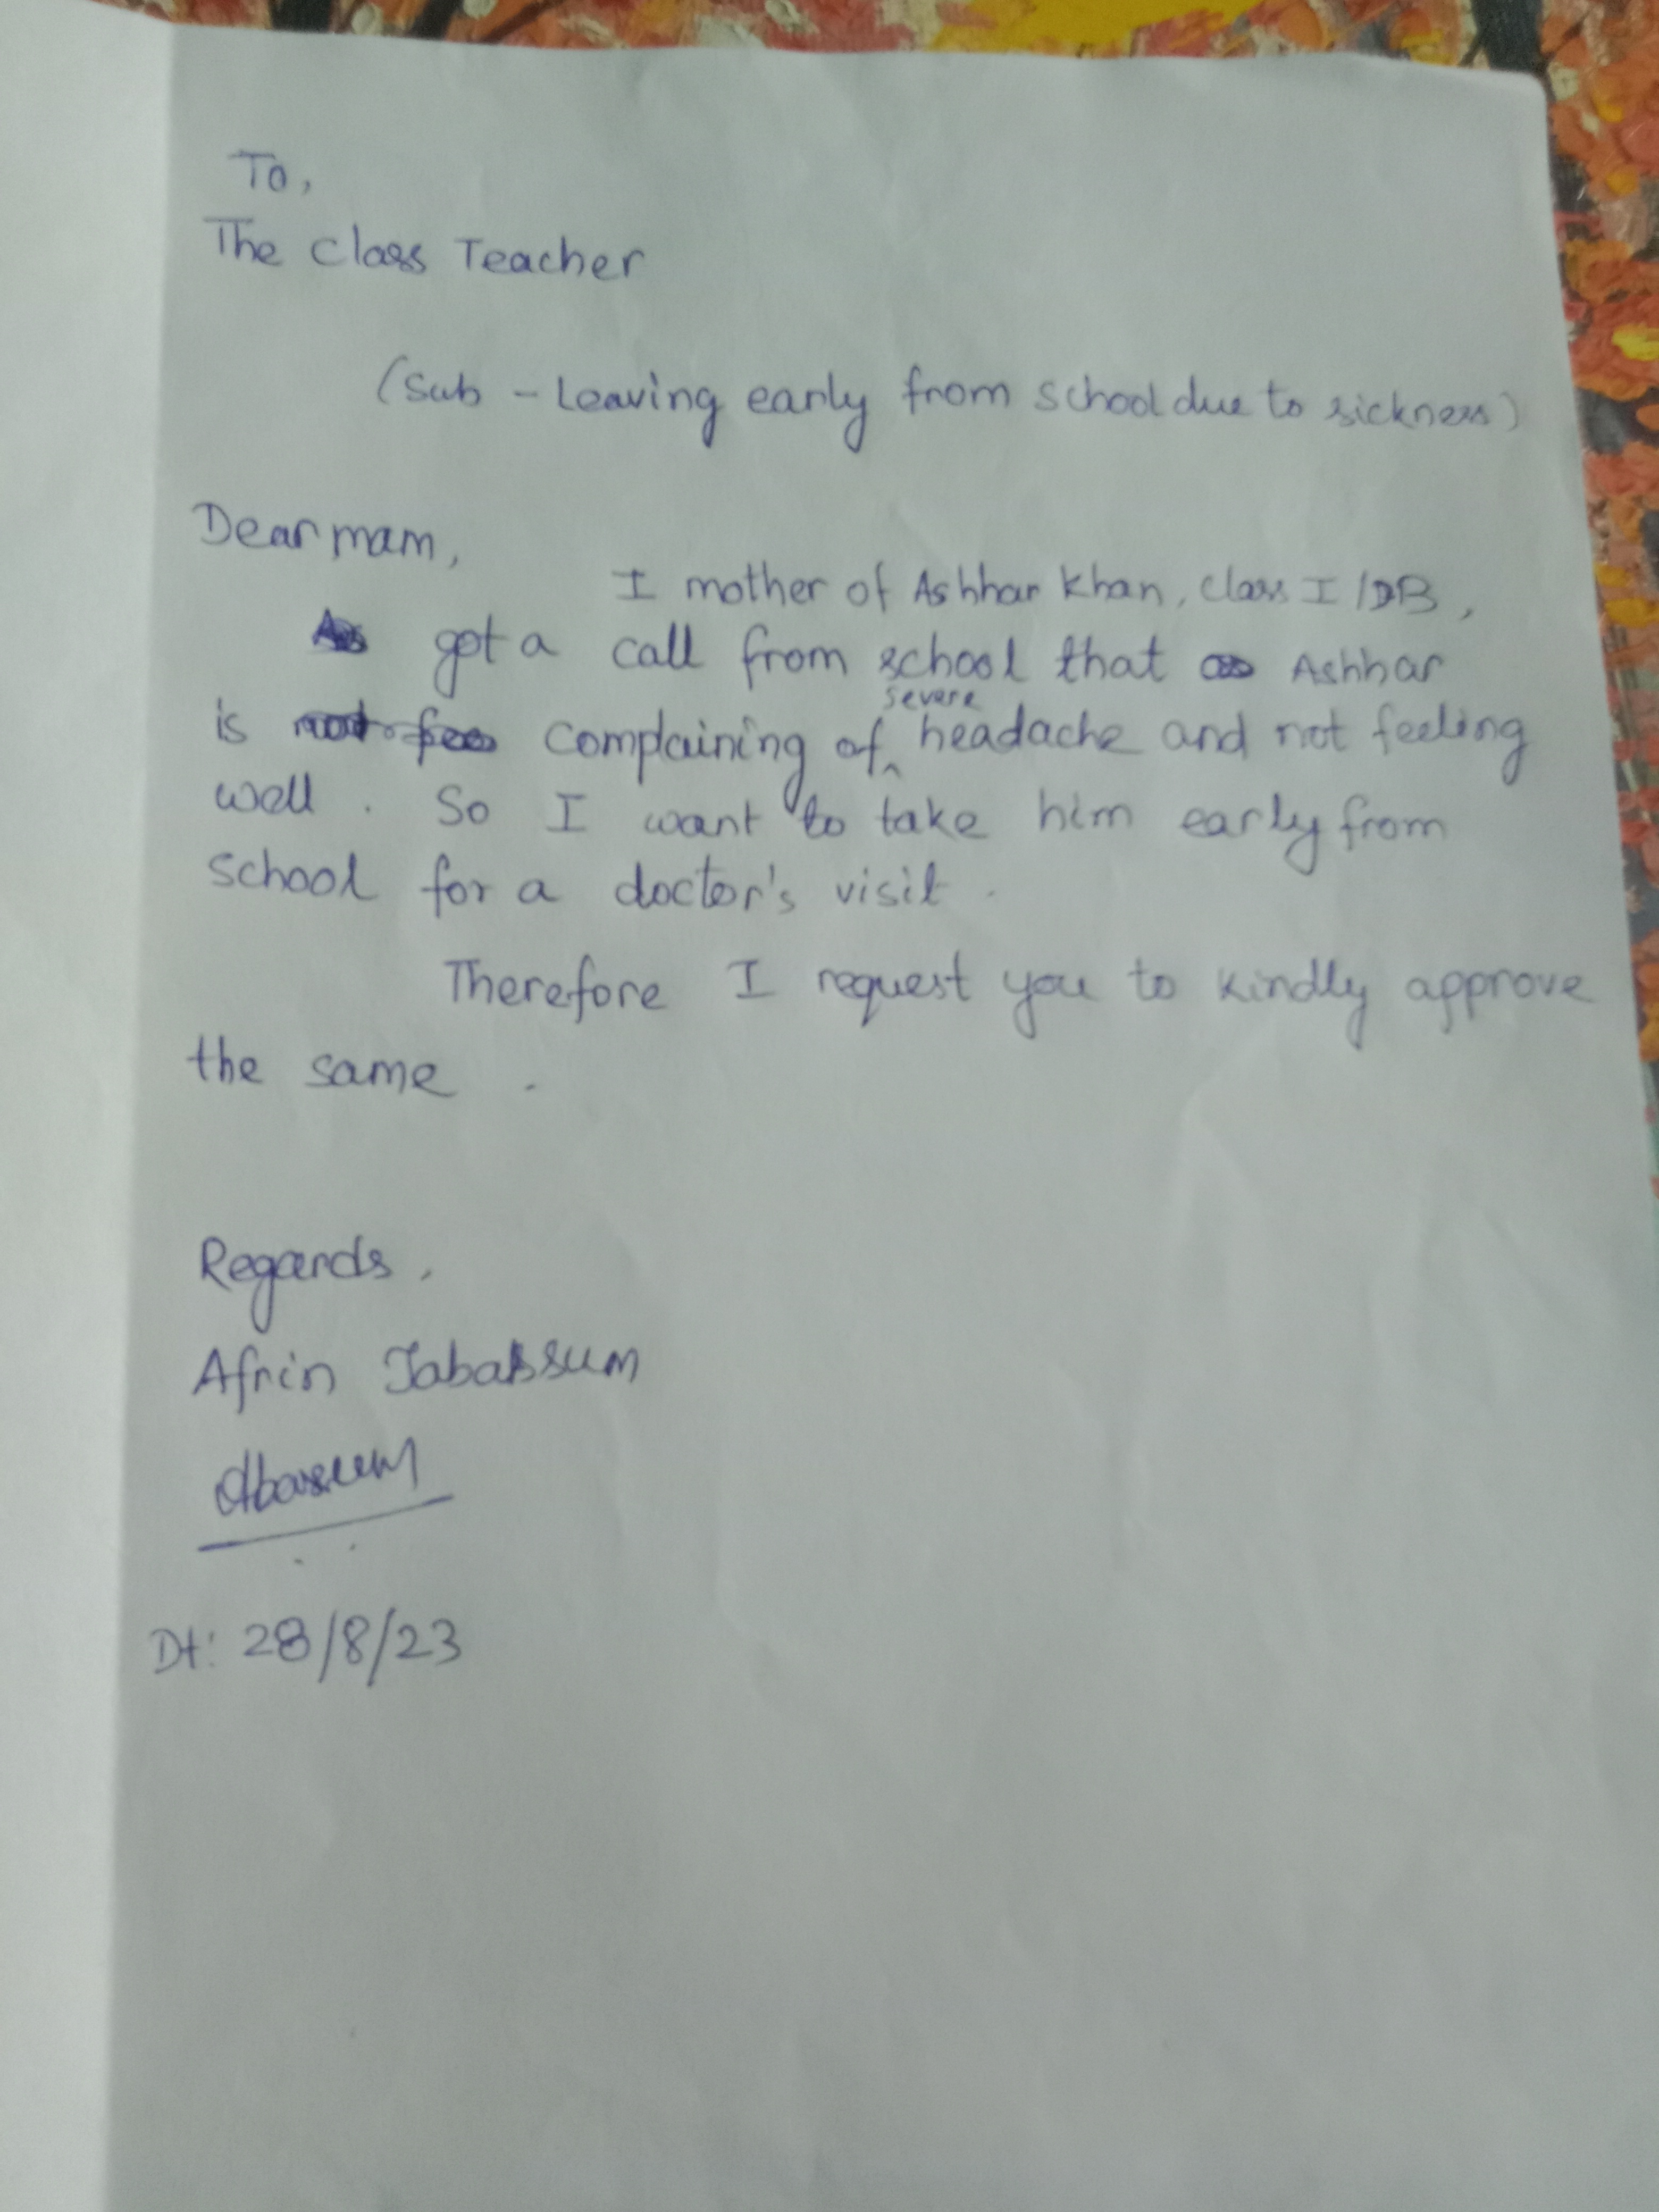 To,
The Class Teacher
(Sub - Leaving early from school due to sickness)
Dear mam,
I mother of Ashhar Khan, class I /DB,
got a call from school that Ashhar
is complaining of severe headache and not feeling
well. So I want to take him early from
school for a doctor's visit.
Therefore I request you to kindly approve
the same.
Regards,
Afrin Tabassum
Dt: 28/8/23